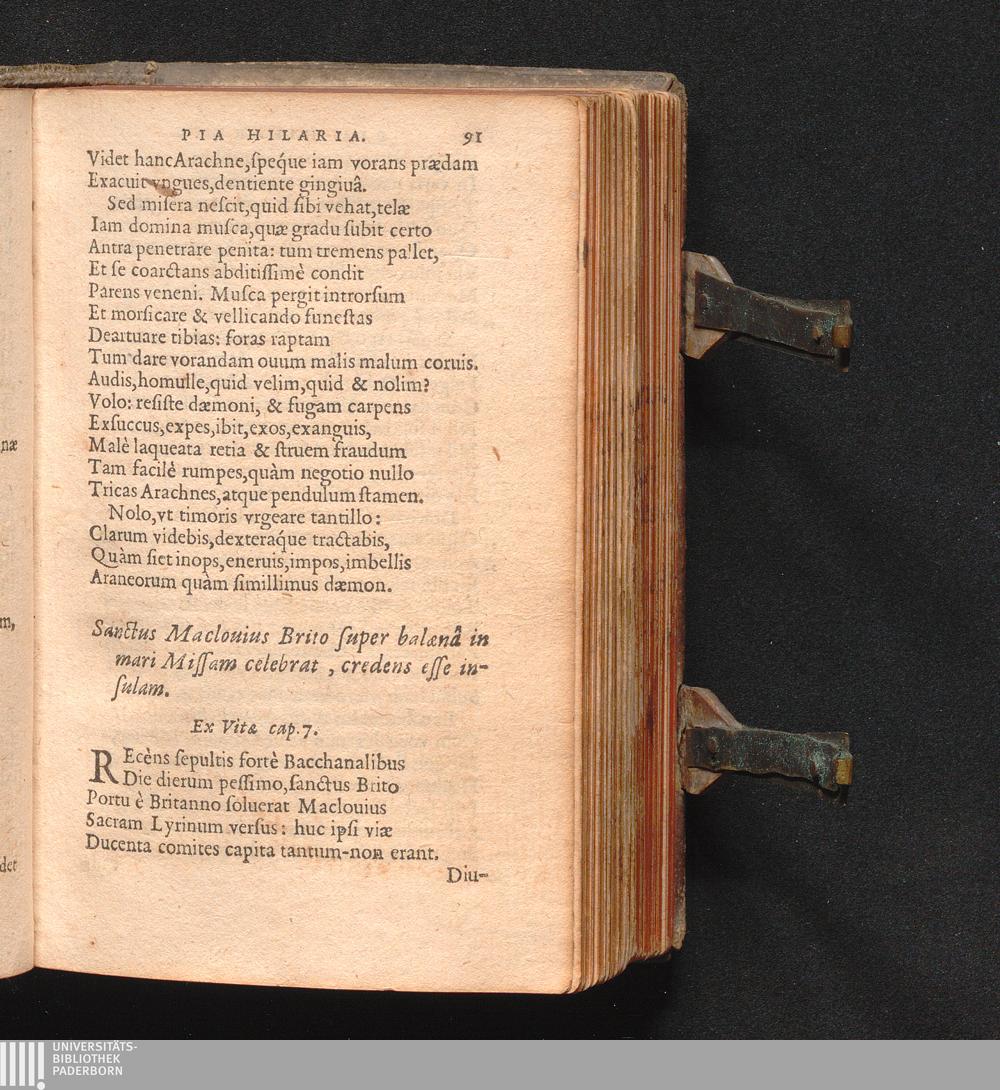 PIA HILARIA. 91
Videt hanc Arachne, ſpeq́ue iam vorans prædam
Exacuit vngues, dentiente gingiuâ.
Sed miſera neſcit, quid ſibi vehat, telæ
Iam domina muſca, quæ gradu ſubit certo
Antra penetrare penita: tum tremens pallet,
Et ſe coarctans abditiſſimè condit
Parens veneni. Muſca pergit introrſum
Et morſicare & vellicando funeſtas
Deartuare tibias: foras raptam
Tum dare vorandam ouum malis malum coruis.
Audis, homulle, quid velim, quid & nolim?
Volo: reſiſte dæmoni, & fugam carpens
Exſuccus, expes, ibit, exos, exanguis,
Malè laqueata retia & ſtruem fraudum
Tam facilè rumpes, quàm negotio nullo
Tricas Arachnes, atque pendulum ſtamen.
Nolo, vt timoris vrgeare tantillo:
Clarum videbis, dexteraq́ue tractabis,
Quàm ſiet inops, eneruis, impos, imbellis
Araneorum quàm ſimillimus dæmon.
Sanctus Maclouius Brito ſuper balænâ in
mari Miſſam celebrat, credens eſſe in-
ſulam.
Ex Vitæ cap. 7.
REcèns ſepultis fortè Bacchanalibus
Die dierum peſſimo, ſanctus Brito
Portu è Britanno ſoluerat Maclouius
Sacram Lyrinum verſus: huc ipſi viæ
Ducenta comites capita tantum-non erant.
Diu-
næ
m,
det
UNIVERSITÄTS-
BIBLIOTHEK
PADERBORN